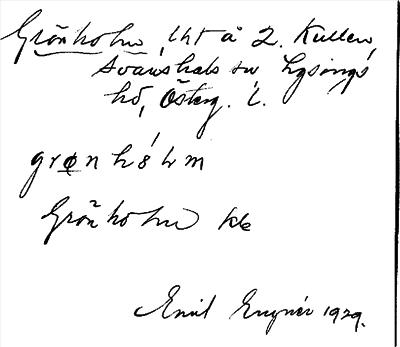 Grönholm, lht å 2. Kullen,
Svanshals sn Lysings
hd, Österg. l.
grønhólm
Grönholm kle
Emil Engnér 1929.